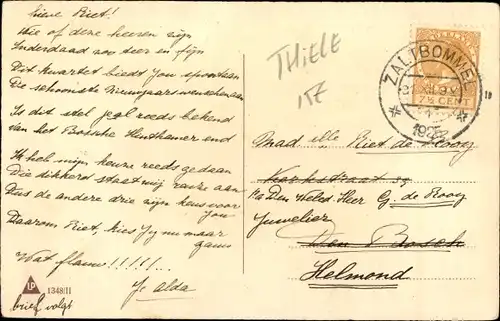 Lieve Riet!
Wie of deze heeren zijn
Inderdaad zoo teer en fijn
Dit kwartet biedt Jou spontaan
De schoonste Nieuwjaarswenschen aan
Is dit stel jeal reeds bekend
van het Bossche end
Ik heb mijn keuze reeds gedaan
Die dikkerd staat mij aan
Dus de andere drie zijn keus voor
jou
Daarom Riet, kies Jij nu maar
gauw
Wat flauw!!!!!...
Je alda
brief volgt
LP
1348/II
THIELE
ZALTBOMMEL
7½ CENT
Mad elle Riet de Rooy
p/a Den Weled. Heer G. de Rooy
Juwelier
Den Bosch
Helmond